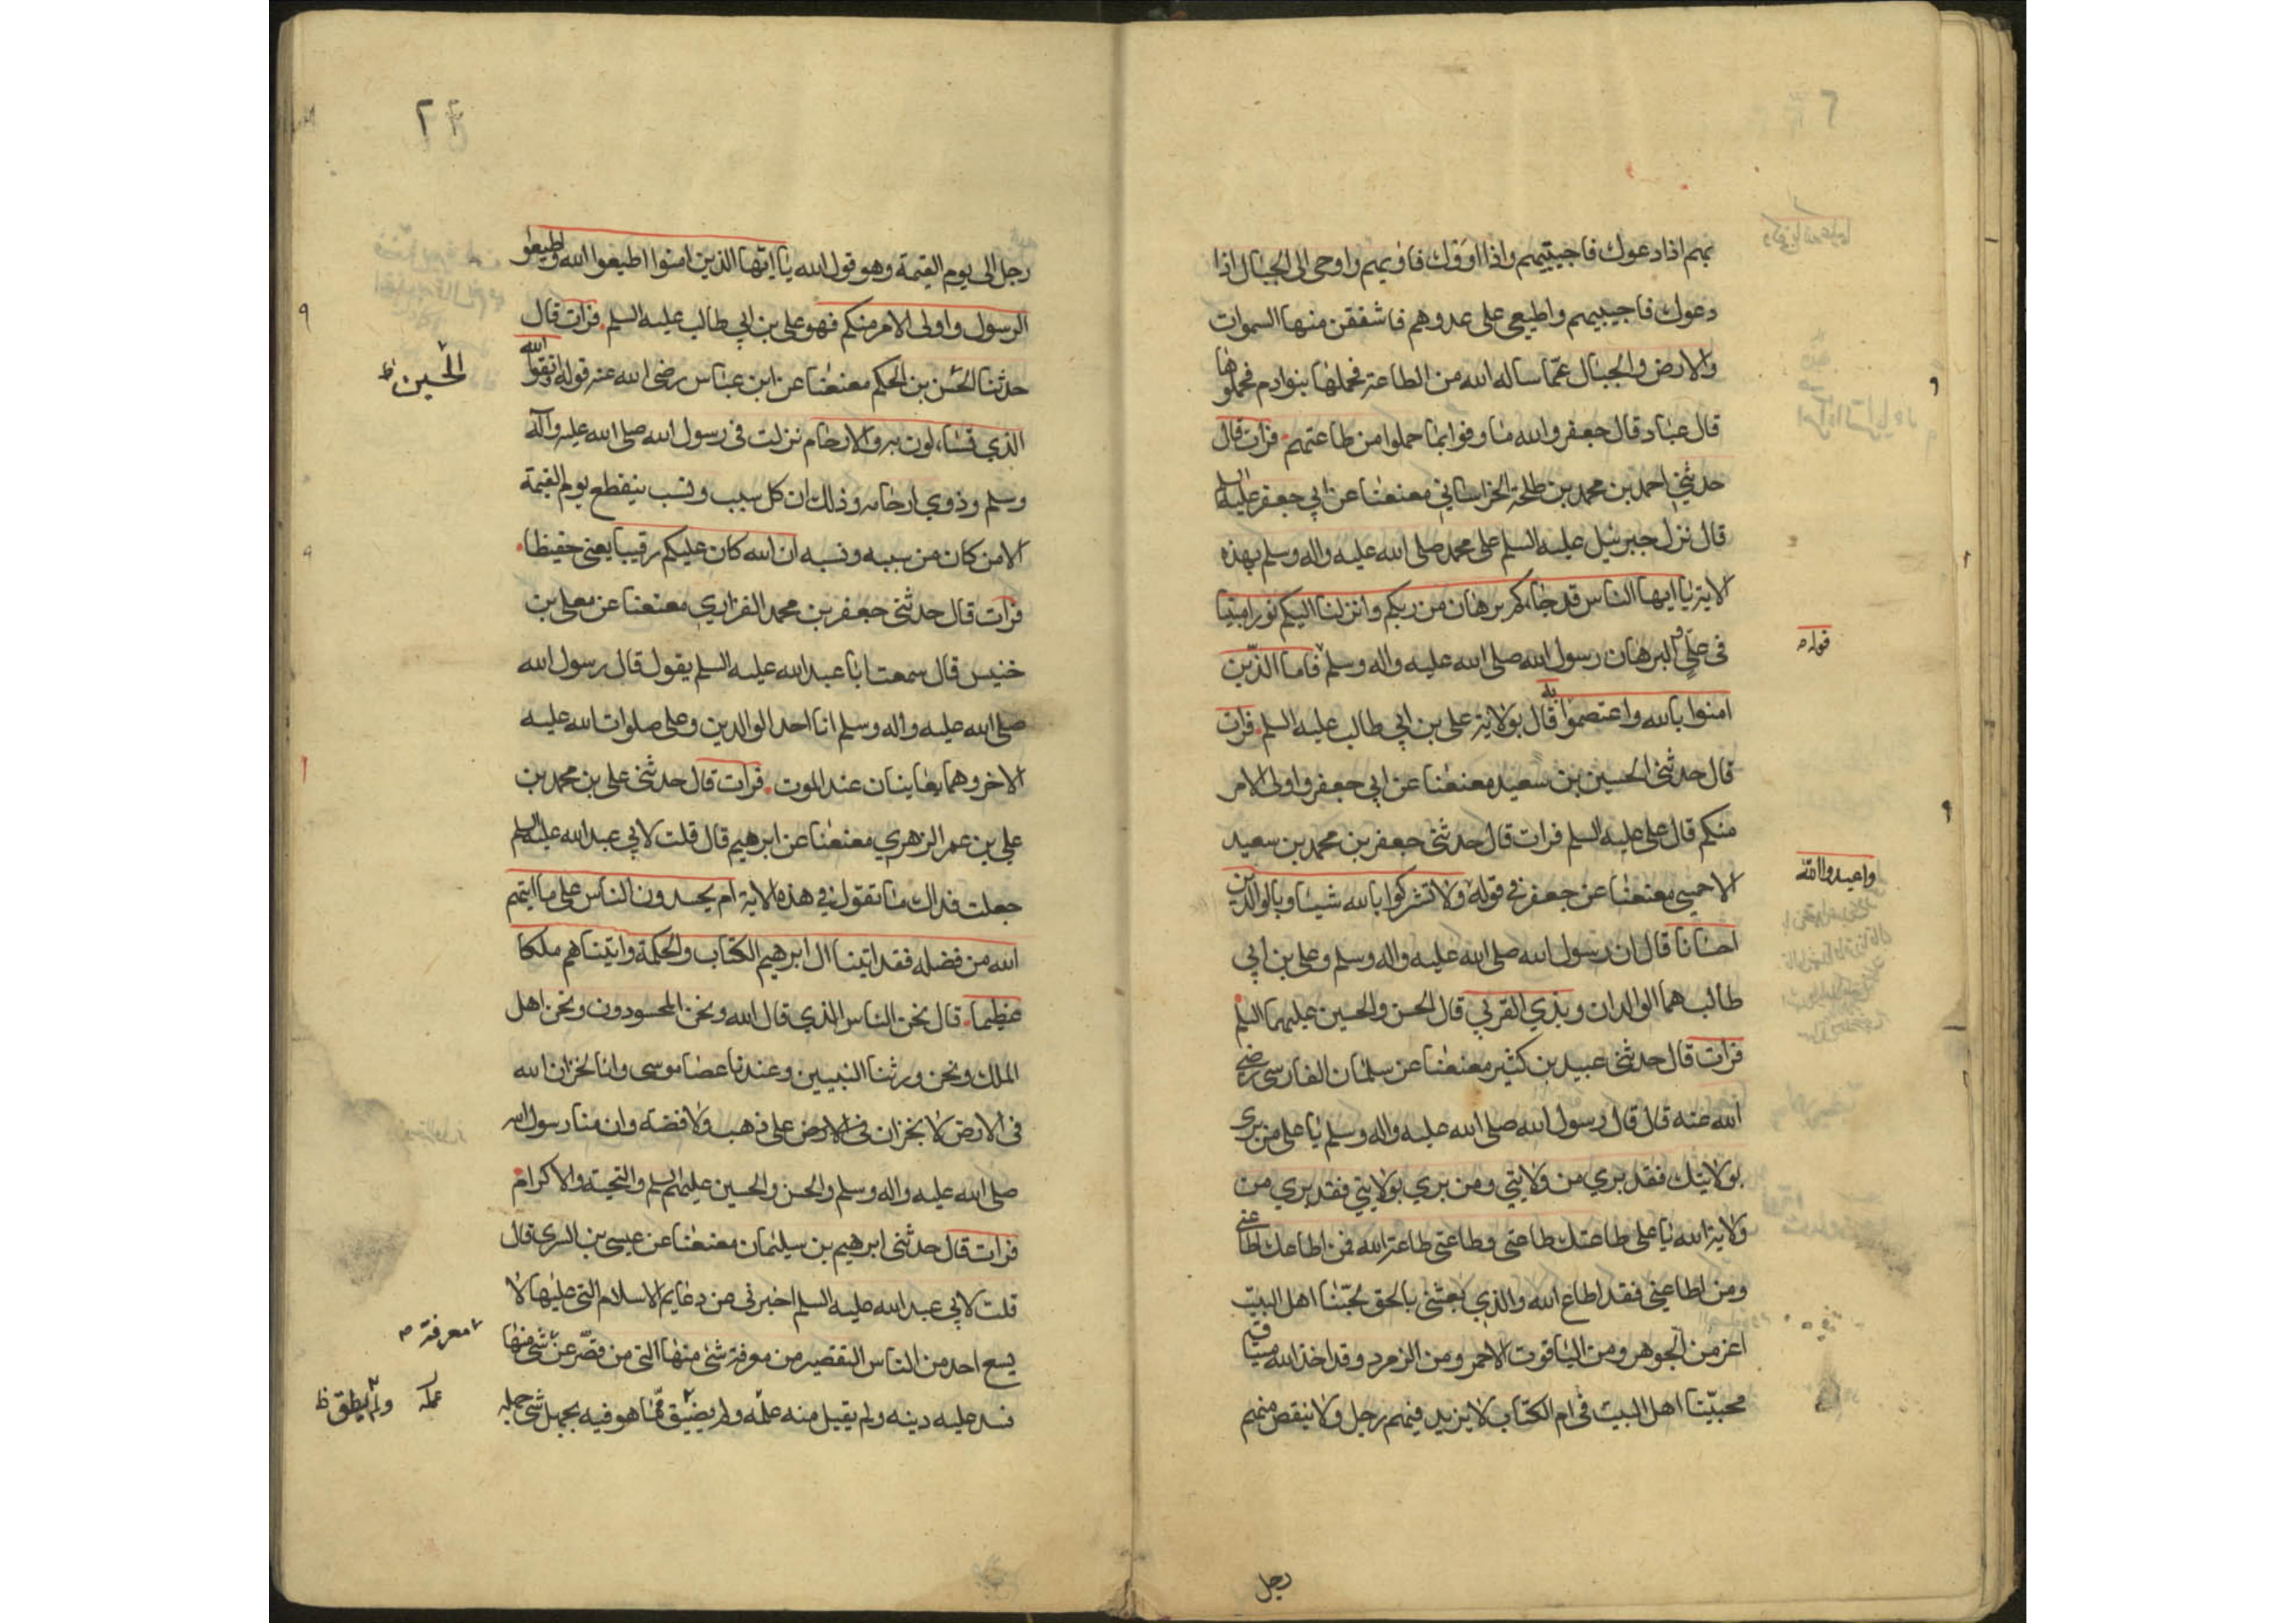 بهم اذا دعوك فاجيبيهم واذا اووك فاويهم واوحى الى الجبال اذا
دعوك فاجيبيهم واطيعي على عدوهم فاشفقن منها السموات
والارض والجبال عمّا ساله الله من الطاعة فحملها بنوادم فحملوها
قال عباد قال جعفر والله ما وفوا بما حملوا من طاعتهم فرات قال
حدثني احمد بن محمد بن طلحة الخراساني معنعنا عن ابي جعفر عليه السلم
قال نزل جبرئيل عليه السلم على محمد صلى الله عليه واله وسلم بهذه
الاية يا ايها الناس قد جاءكم برهان من ربكم وانزلنا اليكم نورا مبينا
في علي والبرهان رسول الله صلى الله عليه واله وسلم فاما الذين
قوله
امنوا بالله واعتصموا به قال بولاية علي بن ابي طالب عليه السلم فرات
قال حدثنى الحسين بن سعيد معنعنا عن ابي جعفر واولى الامر
منكم قال علي عليه السلم فرات قال حدثنى جعفر بن محمد بن سعيد
واعبدوا الله
الاحمسي معنعنا عن جعفر في قوله ولا تشركوا بالله شيئا وبالوالدين
احسانا قال ان رسول الله صلى الله عليه واله وسلم وعلي بن ابي
طالب هما الوالدان وبذي القربي قال الحسن والحسين عليهما السلم
فرات قال حدثنى عبيد بن كثير معنعنا عن سلمان الفارسى رضي
الله عنه قال قال رسول الله صلى الله عليه واله وسلم يا على من برى
بولايتك فقد بري من ولايتي ومن بري بولايتي فقد بري من
ولاية الله يا علي طاعتك طاعتى وطاعتى طاعة الله فمن اطاعك اطاعنى
ومن اطاعني فقد اطاع الله والذي بعثنى بالحق لحبّنا اهل البيت
اعز من الجوهر ومن الياقوت الاحمر ومن الزمرد وقد اخذ الله ميثاق
محبيّنا اهل البيت في ام الكتاب لا يزيد فيهم رجل ولا ينقص منهم
رجل
رجل الى يوم القيمة وهو قول الله يا ايّها الذين امنوا اطيعوا الله واطيعوا
الرسول واولى الامر منكم فهو علي بن ابي طالب عليه السلم فرات قال
حدثنا الحسن بن الحكم معنعنا عن ابن عباس رضى الله عنه قوله واتقوا الله
الحسين ظ
الذي تساءلون به والارحام نزلت في رسول الله صلى الله عليه وآله
وسلم وذوي ارحامه وذلك ان كل سبب ونسب ينقطع يوم القيمة
الا من كان من سببه ونسبه ان الله كان عليكم رقيبا يعنى حفيظا
فرات قال حدثنى جعفر بن محمد الفزاري معنعنا عن معلى بن
خنيس قال سمعت ابا عبد الله عليه السلم يقول قال رسول الله
صلى الله عليه واله وسلم انا احد الوالدين وعلى صلوات الله عليه
الاخر وهما يعاينان عند الموت فرات قال حدثنى علي بن محمد بن
علي بن عمر الزهري معنعنا عن ابرهيم قال قلت لابي عبد الله عليه السلم
جعلت فداك ما تقول في هذه الاية ام يحسدون الناس على ما اتيهم
الله من فضله فقد اتينا ال ابرهيم الكتاب والحكمة واتيناهم ملكا
عظيما قال نحن الناس الذي قال الله ونحن المحسودون ونحن اهل
الملك ونحن ورثنا النبيين وعندنا عصا موسى وانا لخزان الله
في الارض لا بخزان في الارض على ذهب ولا فضة وان منا رسول الله
صلى الله عليه واله وسلم والحسن والحسين عليهم السلم والتحية والاكرام
فرات قال حدثنى ابرهيم بن سليمان معنعنا عن عيسى بن السرى قال
قلت لابي عبد الله عليه السلم اخبرنى عن دعايم الاسلام التي عليها لا
يسع احد من الناس التقصير من معرفة شئ منها التى من قصّر عن شئ منها
معرفة
فسد عليه دينه ولم يقبل منه عمله ولم يضيق ممّا هو فيه بجهل شئ جهله
عمله
ولم يطق ظ